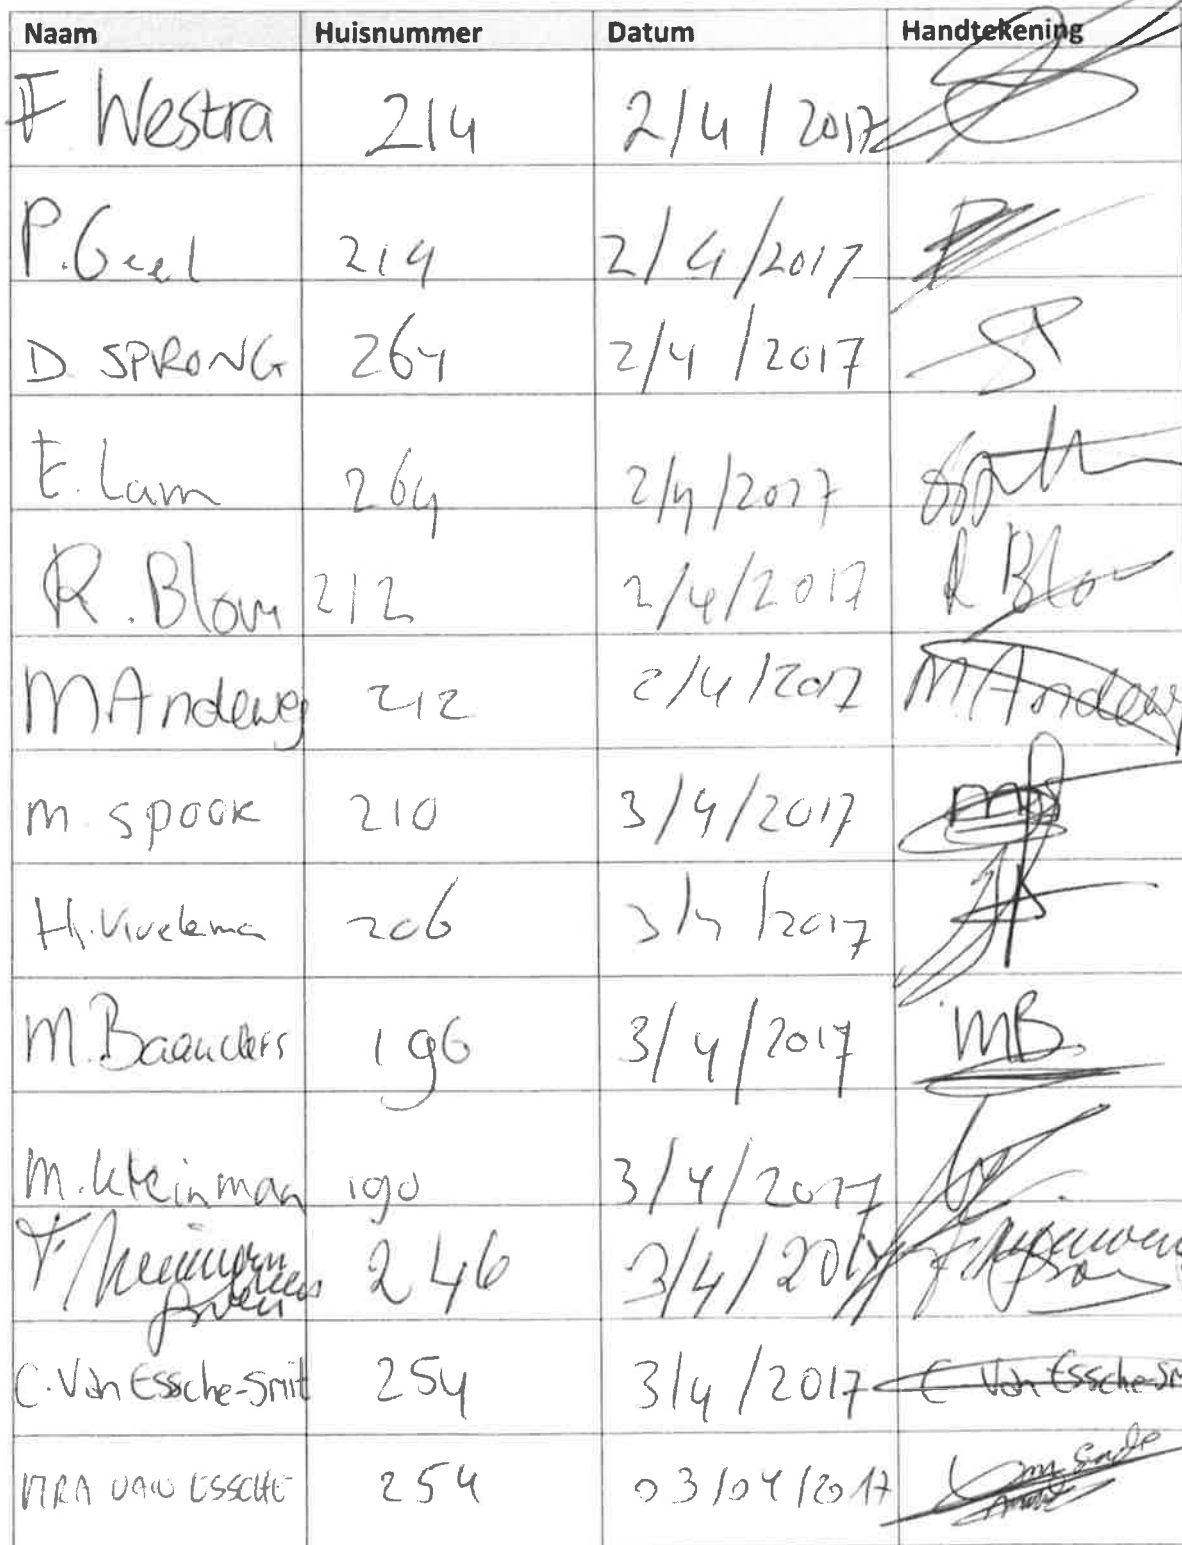 Naam Huisnummer Datum Handtekening
F Westra 214 2/4/2017
P. Geel 214 2/4/2017
D SPRONG 264 2/4/2017
E. Lam 264 2/4/2017
R. Blom 212 2/4/2017 R Blom
M Andeweg 212 2/4/2017 M Andeweg
M. SPOOK 210 3/4/2017
H. 206 3/4/2017
M. Baanders 196 3/4/2017 MB
M. Kleinman 190 3/4/2017
246 3/4/2017
C. Van Essche-Smit 254 3/4/2017 C Van Essche-Sm
VAN ESSCHE 254 03/04/2017